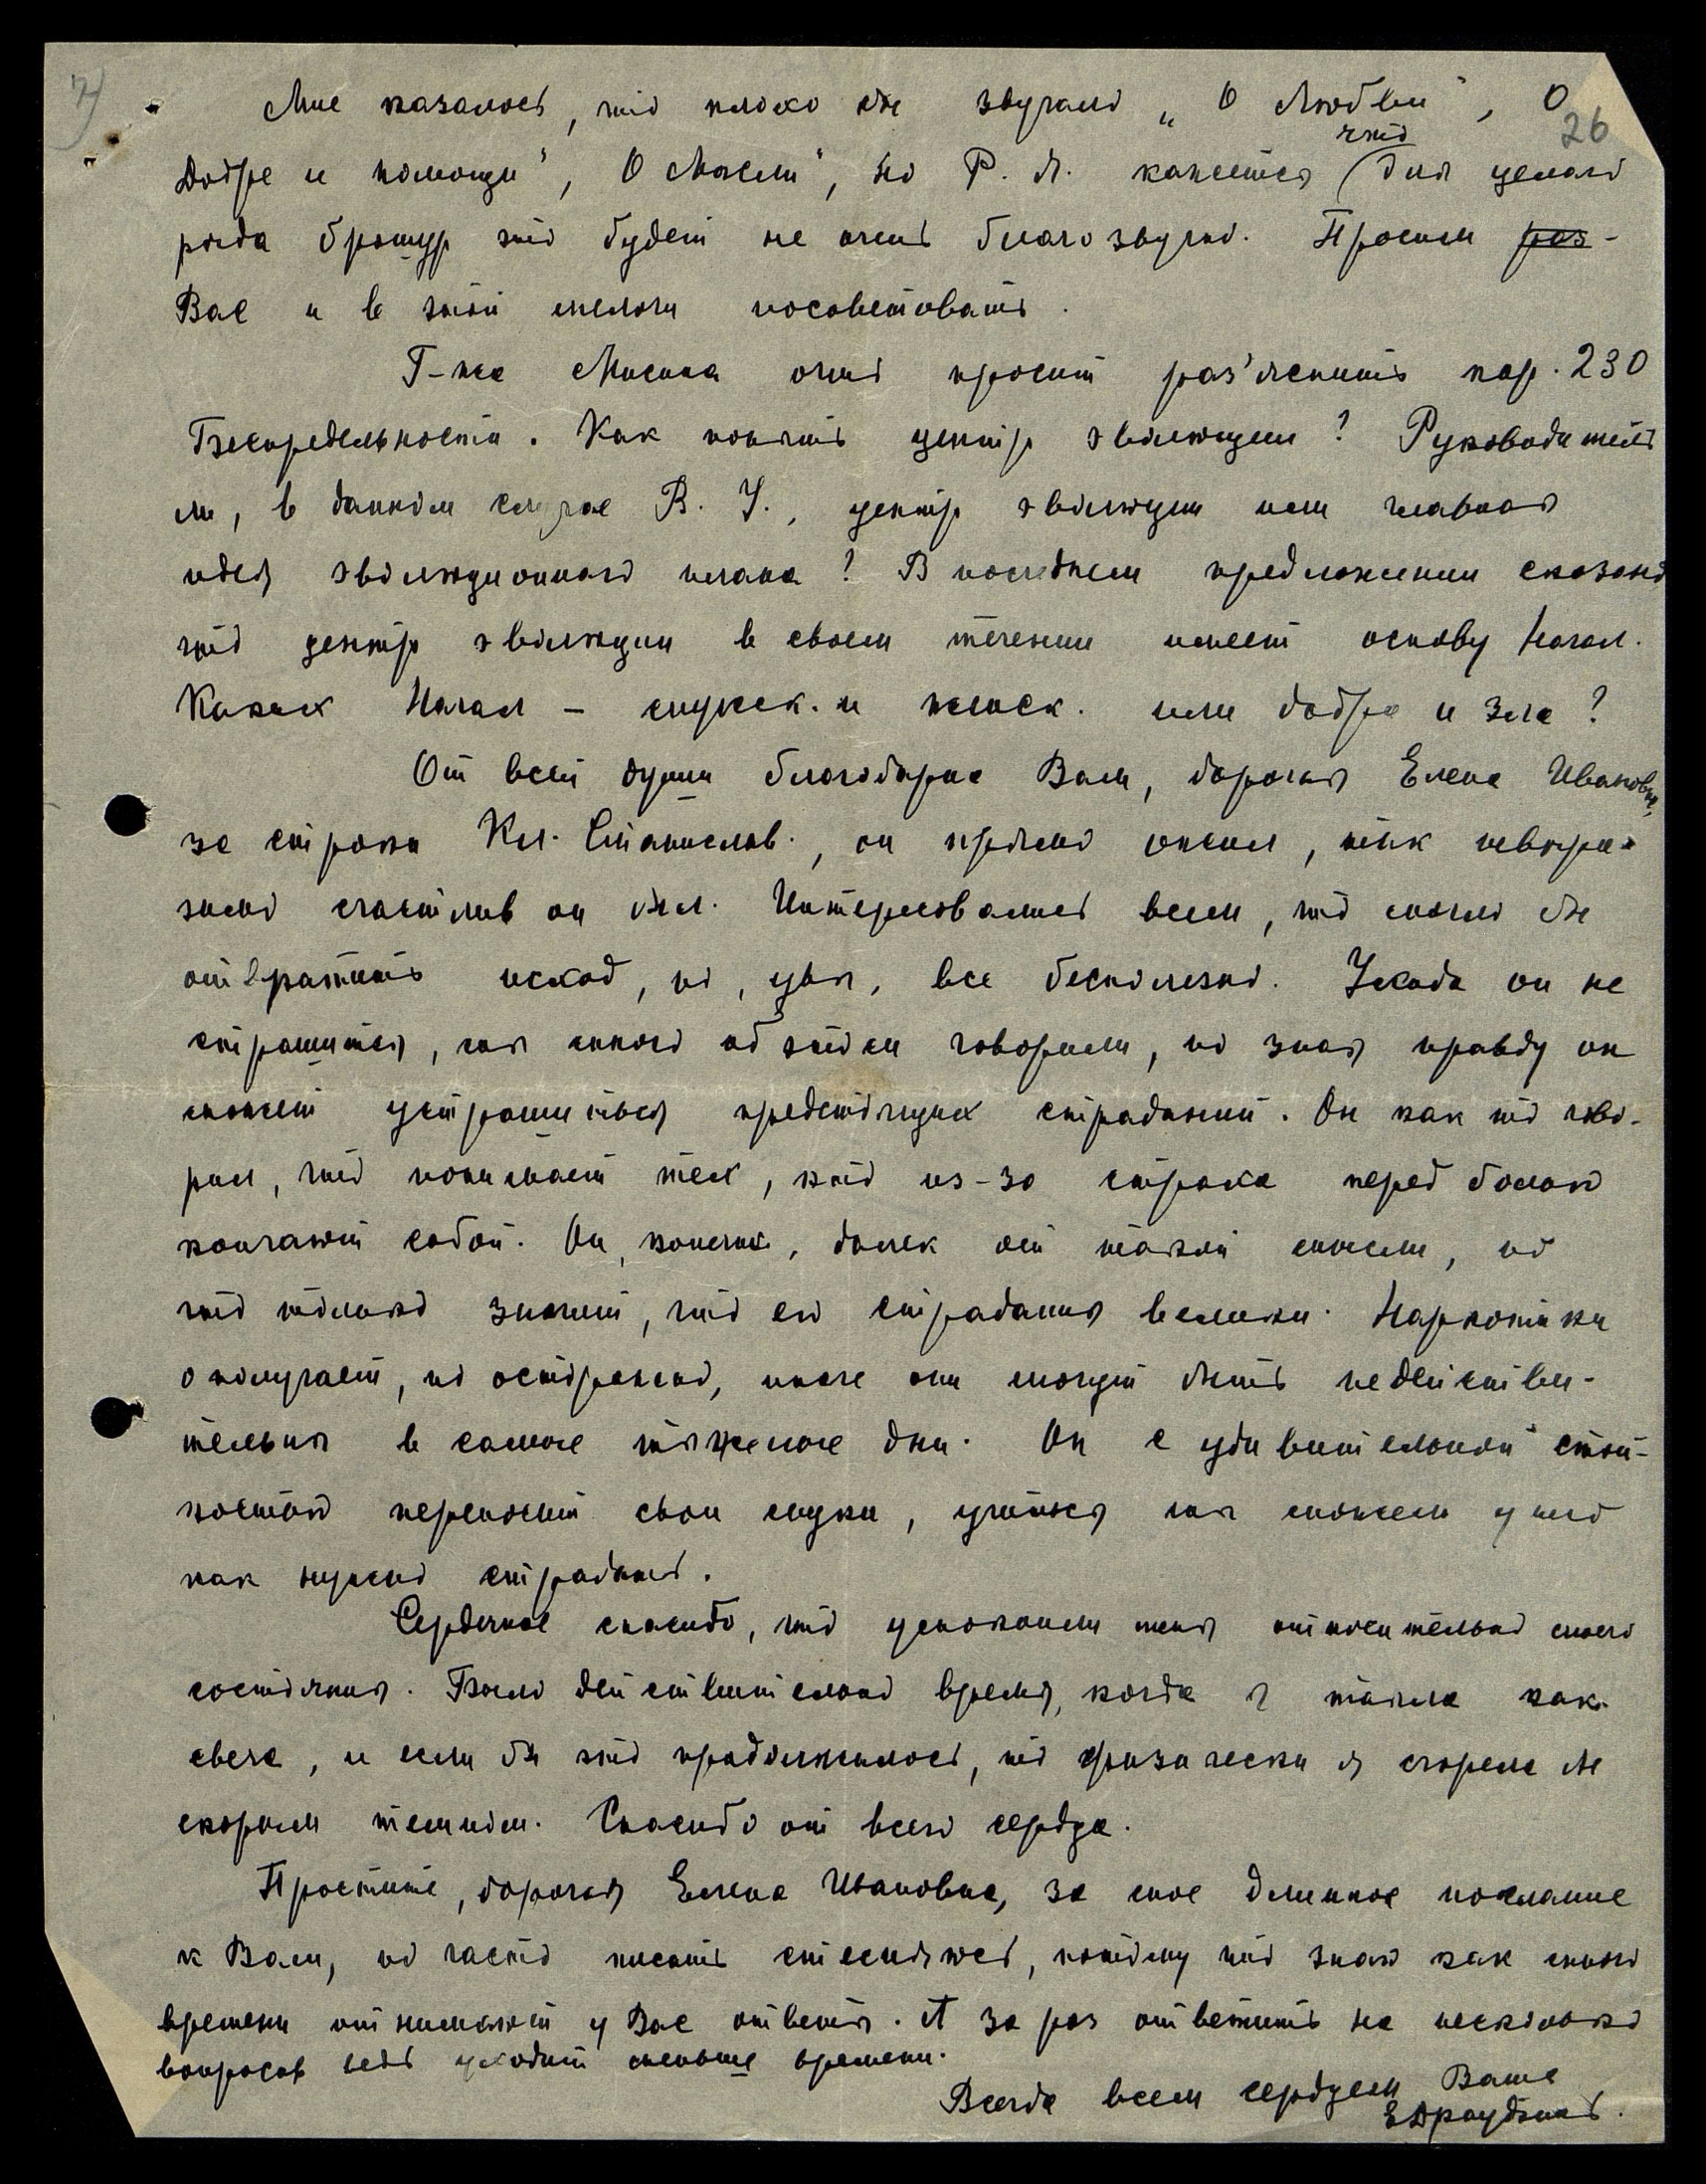 7)
26
Мне казалось, что плохо бы звучало „О Любви", О
что
Добре и помощи", О Мысли", но Р. Я. кажется для целого
ряда брошюр это будет не очень благозвучно. Просим раз-
Вас и в этой мелочи посоветовать.
Г-жа Мисина очень просит раз'яснить пар. 230
Беспредельности. Как понять центр эволюции? Руководитель
ли, в данном случае В. У., центр эволюции или главная
идея эволюционного плана? В последнем предложении сказано
что центр эволюции в своем течении имеет основу Начал.
Каких Начал – мужск. и женск. или добра и зла?
От всей души благодарна Вам, дорогая Елена Ивановна,
за строки Кл. Станислав., он прямо ожил, так невыра-
зимо счастлив он был. Интересовались всем, что могло бы
отвратить исход, но, увы, все бесполезно. Ухода он не
страшится, мы много об этом говорили, но зная правду он
может устрашиться предстоящих страданий. Он как то гово-
рил, что понимает тех, кто из-за страха перед болью
кончают собой. Он, конечно, далек от такой мысли, но
это только значит, что его страдания велики. Наркотики
он получает, но осторожно, иначе они могут быть недействи-
тельны в самые тяжелые дни. Он с удивительной стой-
костью переносит свои муки, учиться мы можем у него
как нужно страдать.
Сердечное спасибо, что успокоили меня относительно моего
состояния. Было действительно время, когда я таяла как
свеча, и если бы это продолжилось, то физически я сгорела бы
скорым темпом. Спасибо от всего сердца.
Простите, дорогая Елена Ивановна, за мое длинное послание
к Вам, но часто писать стесняюсь, потому что знаю как много
времени отнимают у Вас ответы. А за раз ответить на несколько
вопросов ведь уходит меньше времени.
Всегда всем сердцем Ваша
ЕДраудзинь.